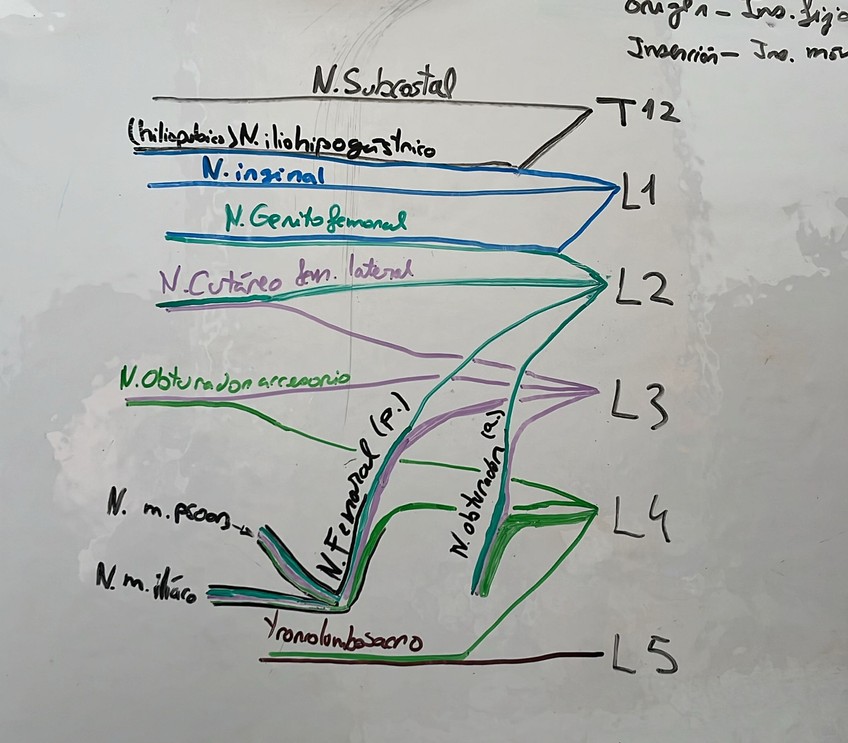 Origen - Ins. fija
Inserción - Ins. mov
N. Subcostal
T12
(hiliopubico) N. iliohipogástrico
N. inginal
L1
N. Genitofemoral
N. Cutáneo fem. lateral
L2
N. Obturador accesorio
L3
N. Femoral (p.)
N. obturador (a.)
N. m. psoas
L4
N. m. ilíaco
Tronolumbosacro
L5